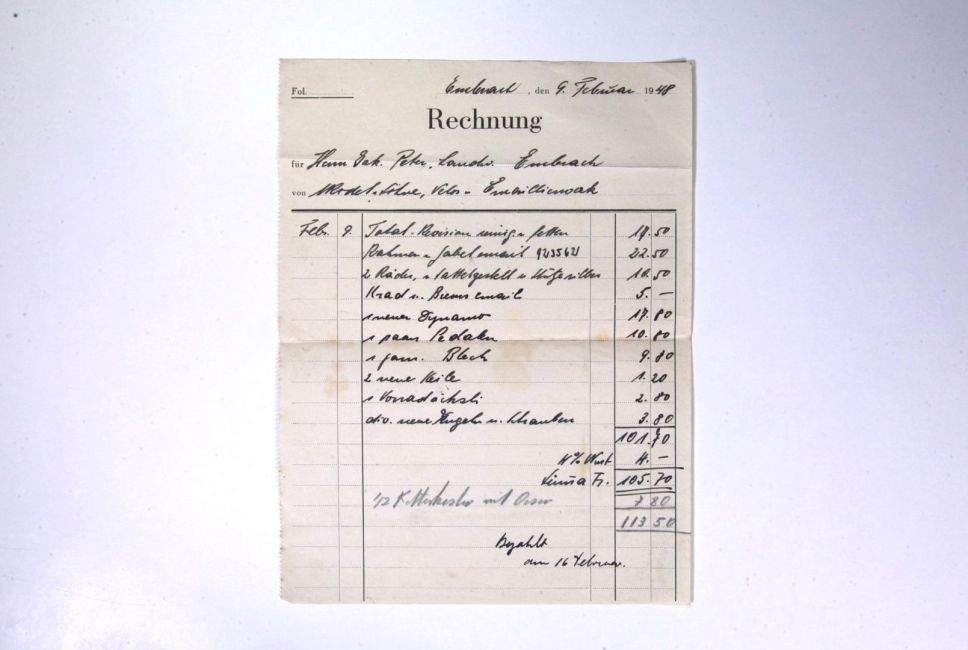 Fol.
Embrach, den 9. Februar 1948
Rechnung
für Herrn Jak. Peter, Landw. Embrach
von Söhne, Velos u.
Febr. 9. Total-Revision reinig. u. fetten 17.50
Rahmen u. Gabel email 9235621 22.50
2 Räder, u. Sattelgestell u. 10.50
Krad u. Brems email 5. —
1 neuer Dynamo 17.80
1 paar Pedalen 10.80
1 gam. Blech 9.80
2 neue Keile 1.20
1 Vorradächsli 2.80
div. neue Kugeln u. Schrauben 3.80
101.70
4% Wust 4. —
Summa Fr. 105.70
1/2 Kettenkasten mit 7 80
113 50
Bezahlt
am 16 Februar.